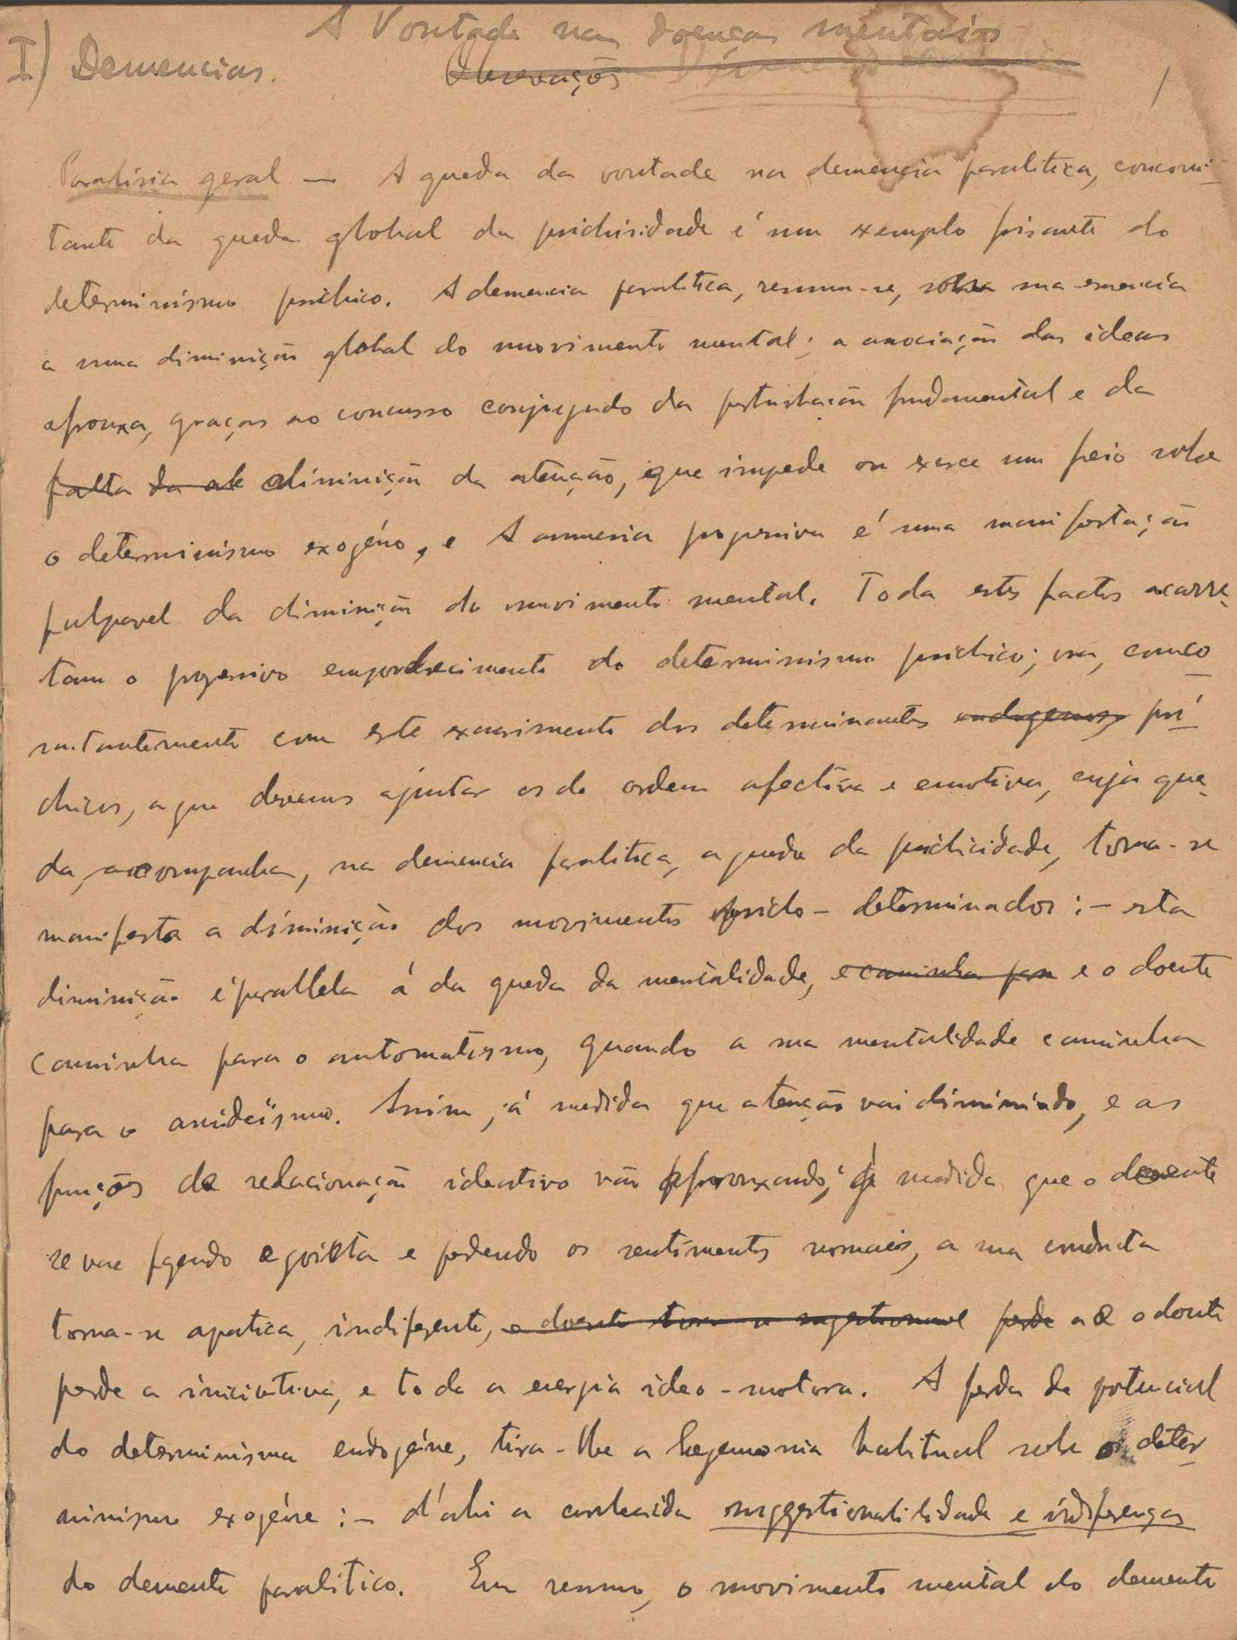 A Vontade nas doenças mentais
I) Demencias.
Observações
1
Paralisia geral — A queda da vontade na demencia paralitica, concomi-
tante da queda global da psichisidade é um exemplo frisante do
determinismo psichico. A demencia paralitica, resume-se, na sua essencia
a uma diminição global do movimento mental; a associação das ideas
afrouxa, graças ao concurso conjugado da perturbação fundamental e da
falta da at diminição da atenção, que impede ou exerce um peio sobre
o determinismo exogéno, e A amnesia progressiva é uma manifestação
palpavel da diminição do movimento mental. Todos estes factos acarre-
tam o progressivo empobrecimento do determinismo psichico; ora, conco-
mitantemente com este exaurimento dos determinantes endogenos, psi-
chicos, a que devemos ajuntar os de ordem afectiva e emotiva, cuja que-
da, acompanha, na demencia paralitica, a queda da psichicidade, torna-se
manifesta a diminição dos movimentos psicho-determinados :— esta
diminição é parallela á da queda da mentalidade, e caminha para e o doente
caminha para o automatismo, quando a sua mentalidade caminha
para o anideismo. Assim, á medida que atenção vai diminindo, e as
funções de relacionação ideativa vão afrouxando; á medida que o demente
se vae fazendo egoista e perdendo os sentimentos normaes, a sua conducta
torna-se apatica, indiferente, o doente torna-se sugestionavel perde a o doente
perde a iniciativa, e toda a energia ideo-motora. A perda de potencial
do determinismo endogéne, tira-lhe a hegemonia habitual sobre o deter-
minismo exogéne :— d'ahi a conhecida suggestionabilidade e indiferença
do demente paralitico. Em resumo, o movimento mental do demente